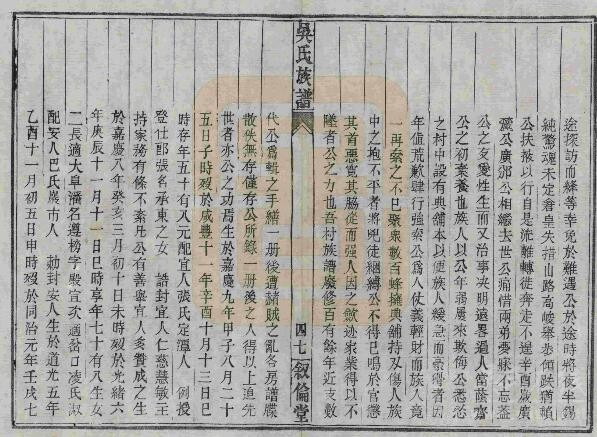 途探訪而絳等幸免於難遇公於途時將夜半錫
純驚魂未定倉皇失措山路高峻舉步傾跌猶賴
公扶掖以行自是流離轉徙奔走不遑辛酉歲廣
瀛公廣渊公相繼去世公痛惜兩弟夢寐不忘蓋
公之友愛性生而又治事決明遠畧過人當蔭齋
公之初棄養也族人以公年弱屢來欺侮公悉忿
之村中設有典舖本以便族人緩急而豪得者因
年值荒歉肆行強索公為人仗義輕財而族人竟
一再索之不已聚衆數百蜂擁典舖持刃傷人族
中之抱不平者將兇徒綑縛公不得已鳴於官懲
其首惡寬其脇從而强人因之歛迹家業得以不
墜者公之力也吾村族譜廢修百有餘年近支數
吳氏族譜
四七
叙倫堂
代公爲輯之手繕一册後遭赭賊之亂各房譜牒
散佚無存僅存公所錄一册後之人得以上追先
世者亦公之功焉生於嘉慶九年甲子八月二十
五日子時歿於咸豐十一年辛酉十月十三日巳
時存年五十有八元配宜人張氏定潭人 例授
登仕郎張名承東之女 誥封宜人仁慈慧敏主
持家務有條不紊凡公有善舉宜人多贊成之生
於嘉慶八年癸亥三月初十日未時歿於光緒六
年庚辰十一月十一日巳時享年七十有八生女
二長適大阜潘名遵榜字殿宜次適岔口凌氏淑
配安人巴氏歙市人 勅封安人生於道光五年
乙酉十一月初五日申時歿於同治元年壬戌七